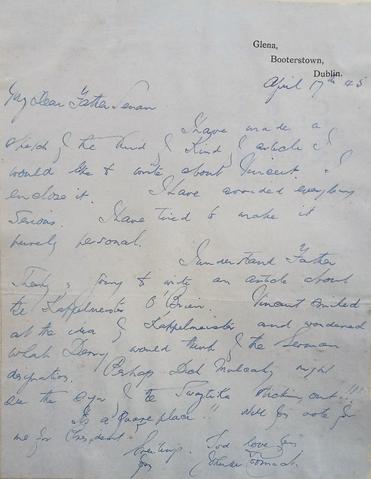 Glena,
Booterstown,
Dublin.
April 17th 45
My Dear Father Senan
I have made a
sketch of the kind of article I
would like to write about Vincent. + I
enclose it. I have avoided everything
serious. I have tried to make it
purely personal.
I understand Father
is going to write an article about
the Kappelmeister O'Brien. Vincent smiled
at the idea of Kappelmeister and wondered
what would think of the German
designation. Perhaps Dick Mulcahy might
see the Eyes of the Swastika sticking out!!!
It's a quare place!! Will you vote for
me for President?
Greetings. God love you
John McCormack